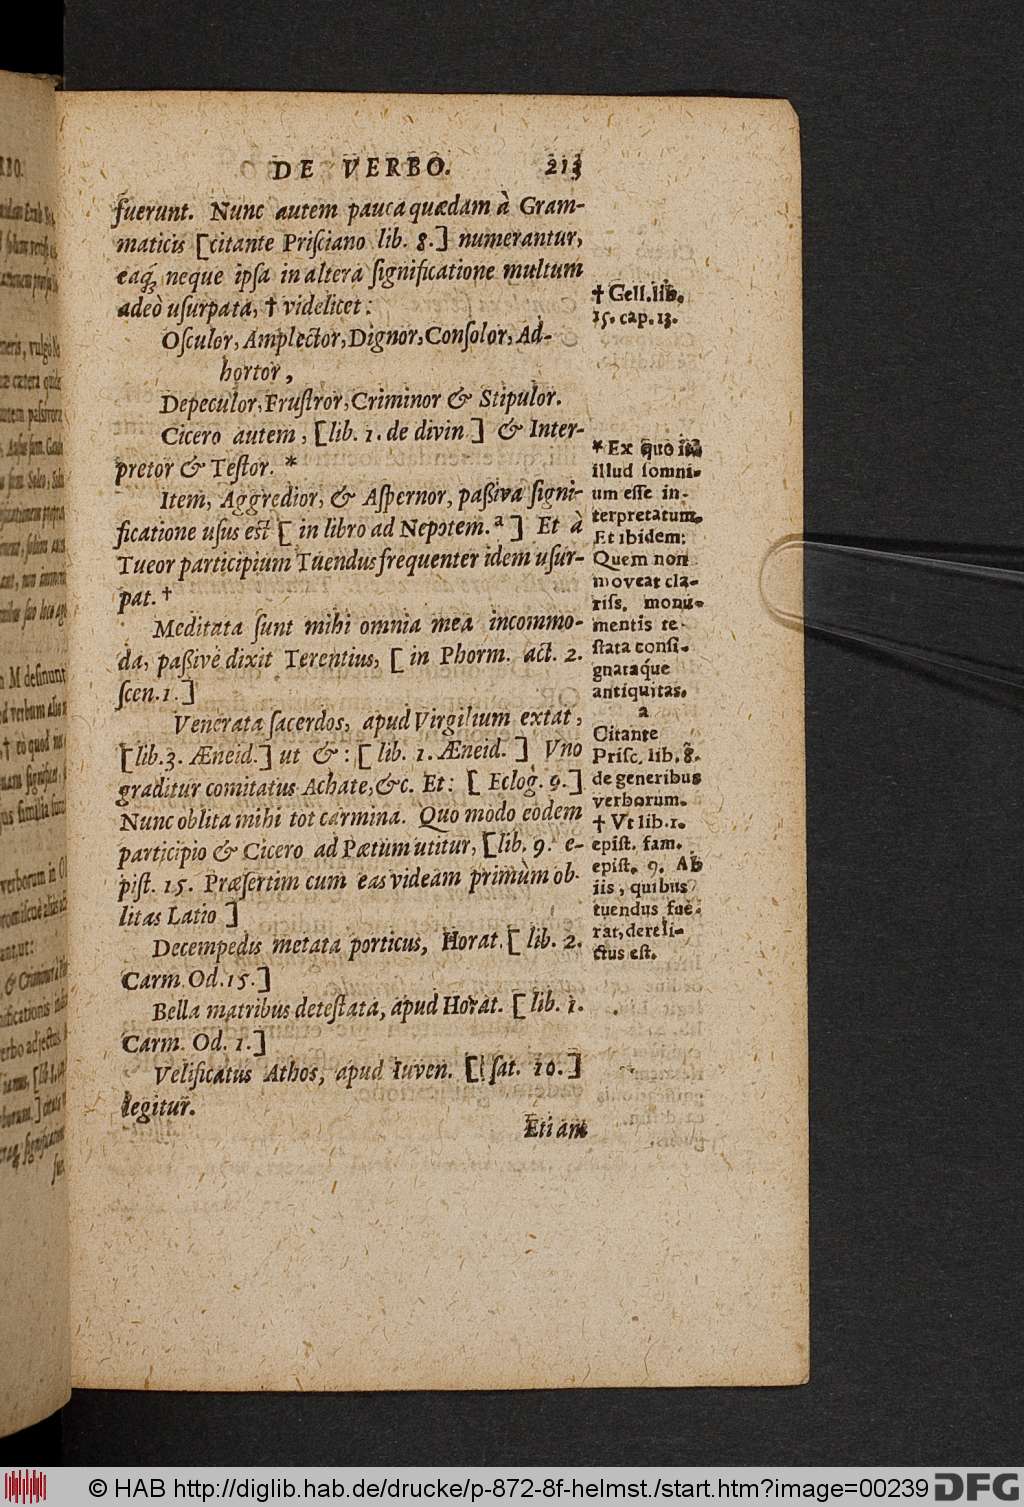 DE VERBO. 213
fuerunt. Nunc autem pauca quædam à Gram-
maticis [citante Prisciano lib. 8.] numerantur,
eaq́; neque ipsa in altera significatione multum
adeò usurpata, † videlicet:
Osculor, Amplector, Dignor, Consolor, Ad-
hortor,
Depeculor, Frustror, Criminor & Stipulor.
Cicero autem, [lib. 1. de divin] & Inter-
pretor & Testor. *
Item, Aggredior, & Aspernor, paßiva signi-
ficatione usus est [in libro ad Nepotem. a] Et à
Tueor participium Tuendus frequenter idem usur-
pat. †
Meditata sunt mihi omnia mea incommo-
da, paßivè dixit Terentius, [in Phorm. act. 2.
scen. 1.]
Venerata sacerdos, apud Virgilium extat,
[lib. 3. Æneid.] ut & : [lib. 1. Æneid.] Uno
graditur comitatus Achate, &c. Et: [Eclog. 9.]
Nunc oblita mihi tot carmina. Quo modo eodem
participio & Cicero ad Pætum utitur, [lib. 9. e-
pist. 15. Præsertim cum eas videam primùm ob-
litas Latio]
Decempedis metata porticus, Horat. [lib. 2.
Carm. Od. 15.]
Bella matribus detestata, apud Horat. [lib. 1.
Carm. Od. 1.]
Velificatus Athos, apud Iuven. [sat. 10.]
legitur.
Etiam
† Gell. lib.
15. cap. 13.
* Ex quo ita
illud somni-
um esse in-
terpretatum.
Et ibidem:
Quem non
moveat cla-
riss. monu-
mentis te-
stata consi-
gnataq́ue
antiquitas.
a
Citante
Prisc. lib. 8.
de generibus
verborum.
† Vt lib. 1.
epist. fam.
epist. 9. Ab
iis, quibus
tuendus fue-
rat, dereli-
ctus est.
© HAB http://diglib.hab.de/drucke/p-872-8f-helmst./start.htm?image=00239 DFG